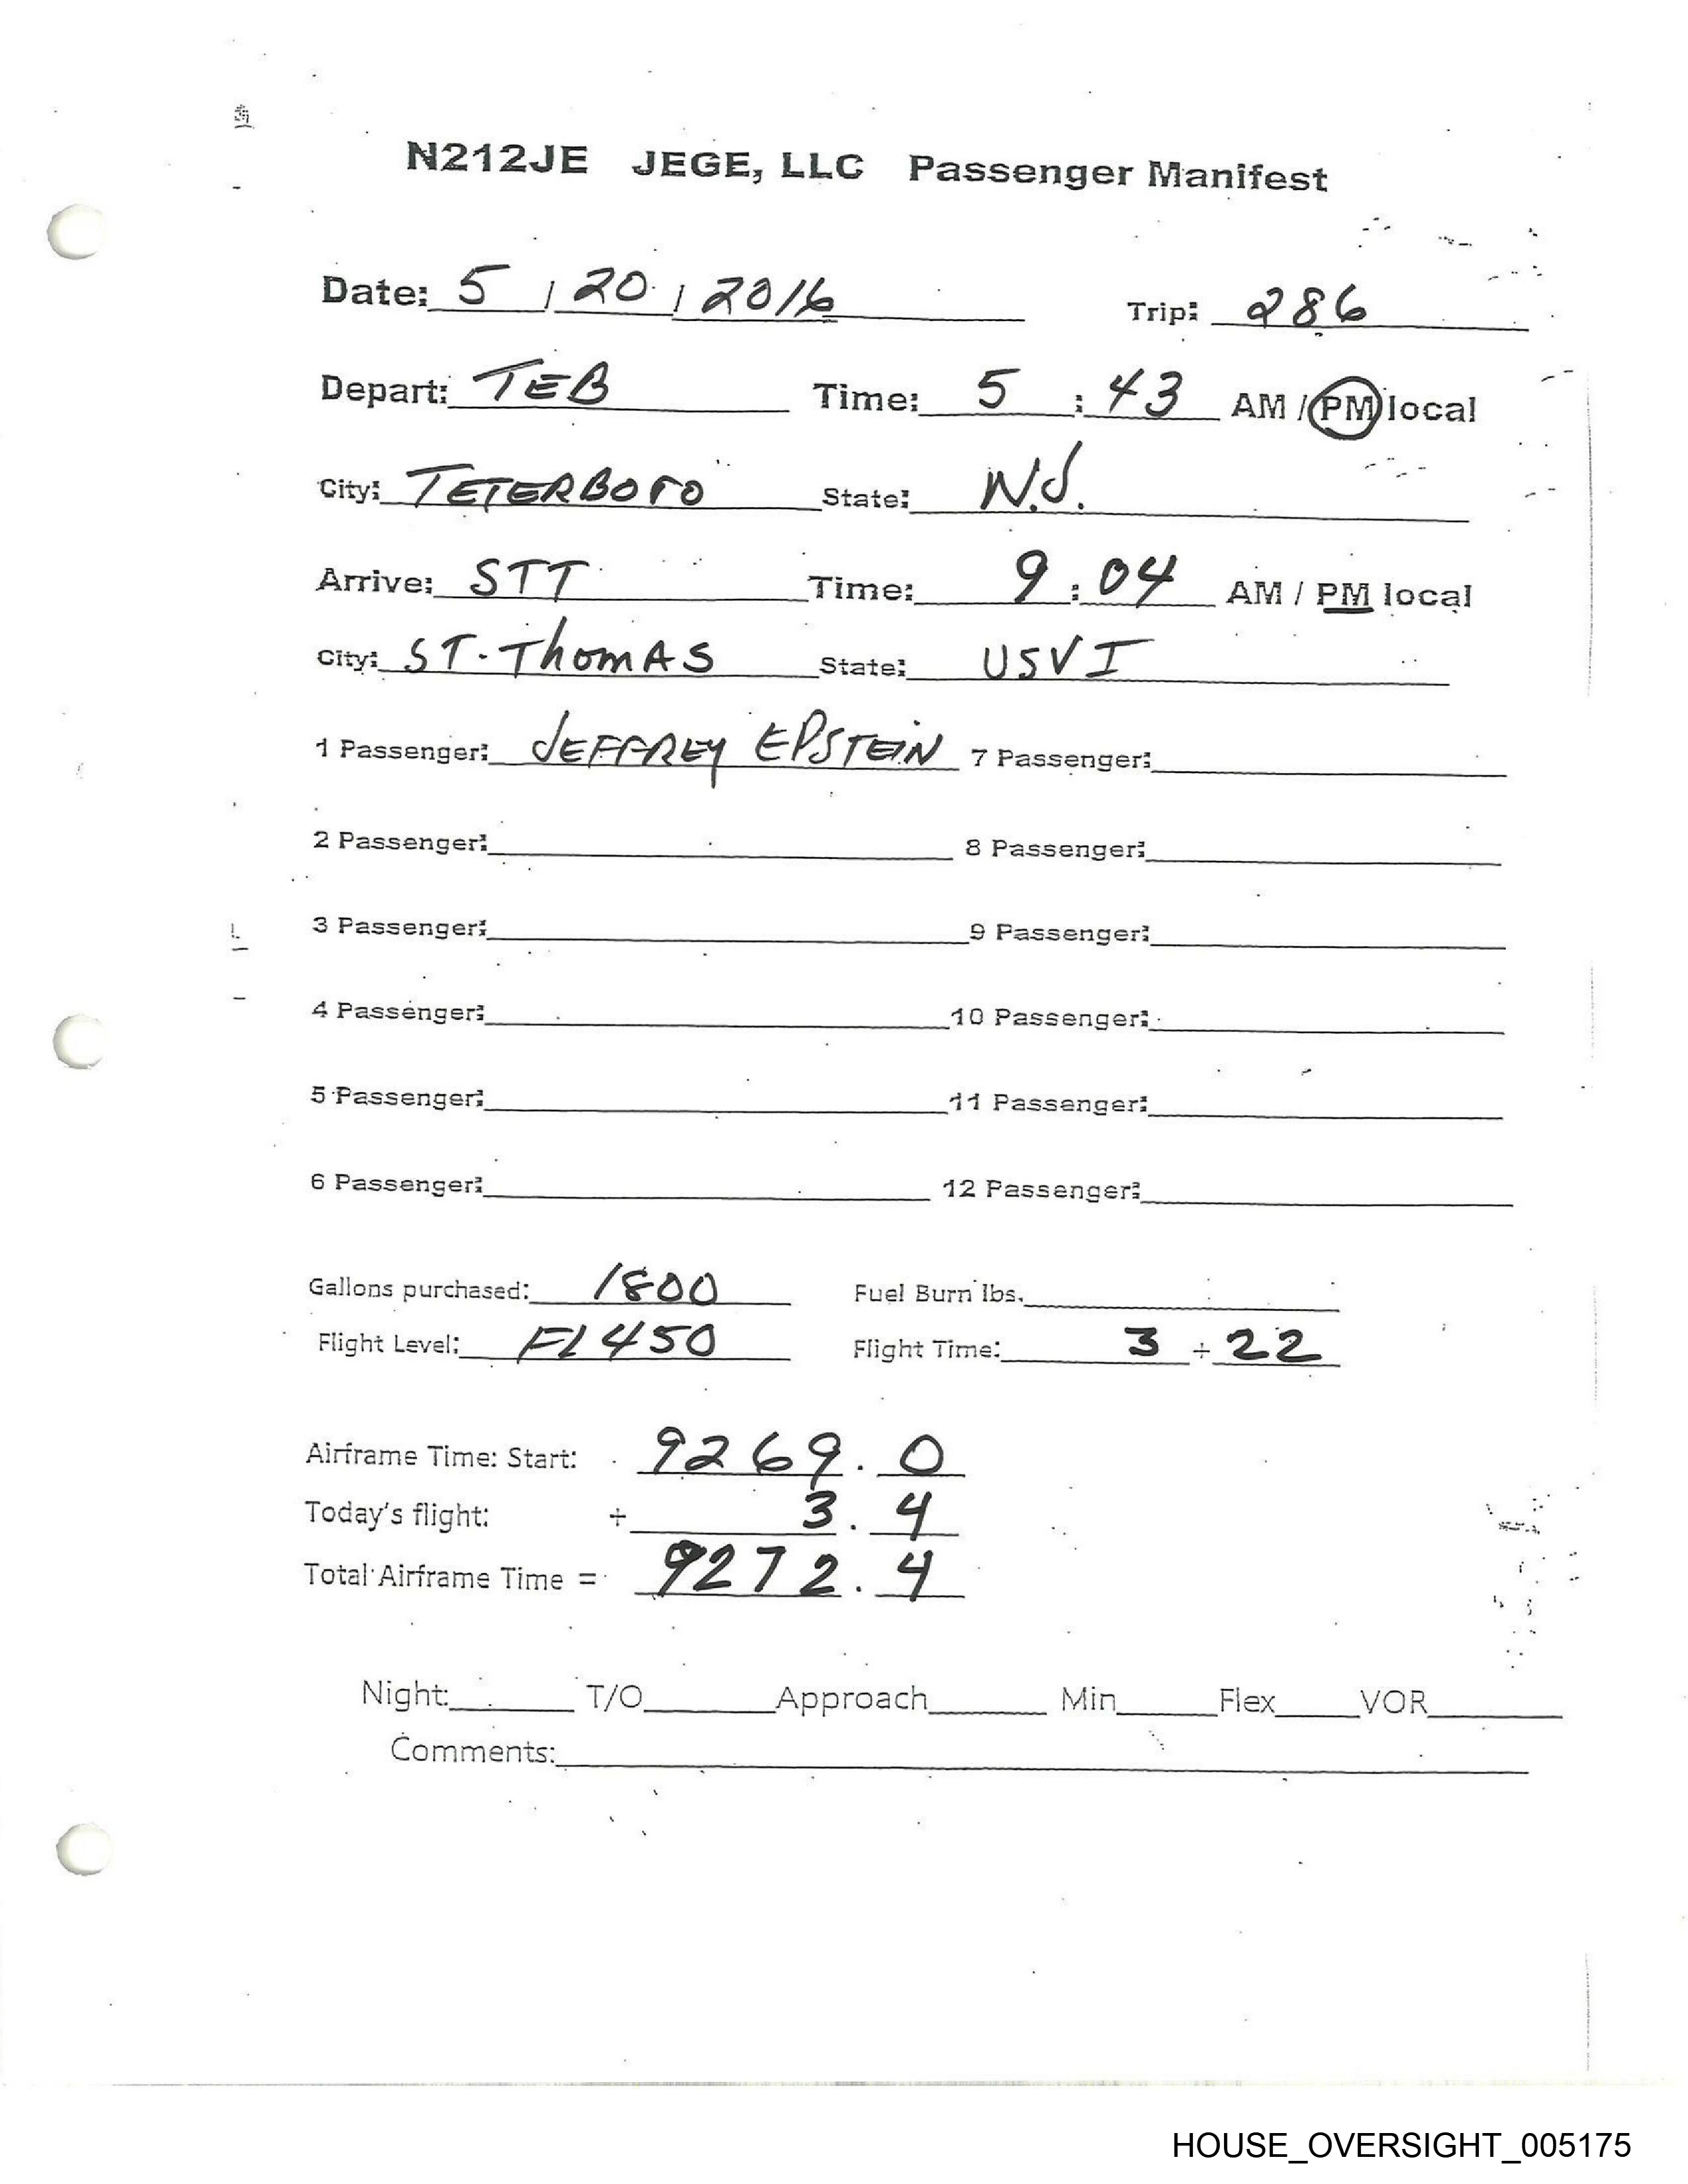 N212JE JEGE, LLC Passenger Manifest
Date: 5 / 20 / 2016 Trip: 286
Depart: TEB Time: 5 : 43 AM / PM local
City: TETERBORO State: N.J.
Arrive: STT Time: 9 : 04 AM / PM local
City: ST. ThomAS State: USVI
1 Passenger: JEFFREY EPSTEIN 7 Passenger:
2 Passenger: 8 Passenger:
3 Passenger: 9 Passenger:
4 Passenger: 10 Passenger:
5 Passenger: 11 Passenger:
6 Passenger: 12 Passenger:
Gallons purchased: 1800 Fuel Burn lbs.
Flight Level: FL450 Flight Time: 3 + 22
Airframe Time: Start: 9269.0
Today's flight: + 3.4
Total Airframe Time = 9272.4
Night: T/O Approach Min Flex VOR
Comments:
HOUSE_OVERSIGHT_005175